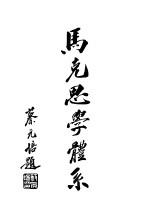 馬克思學體系
蔡元培題